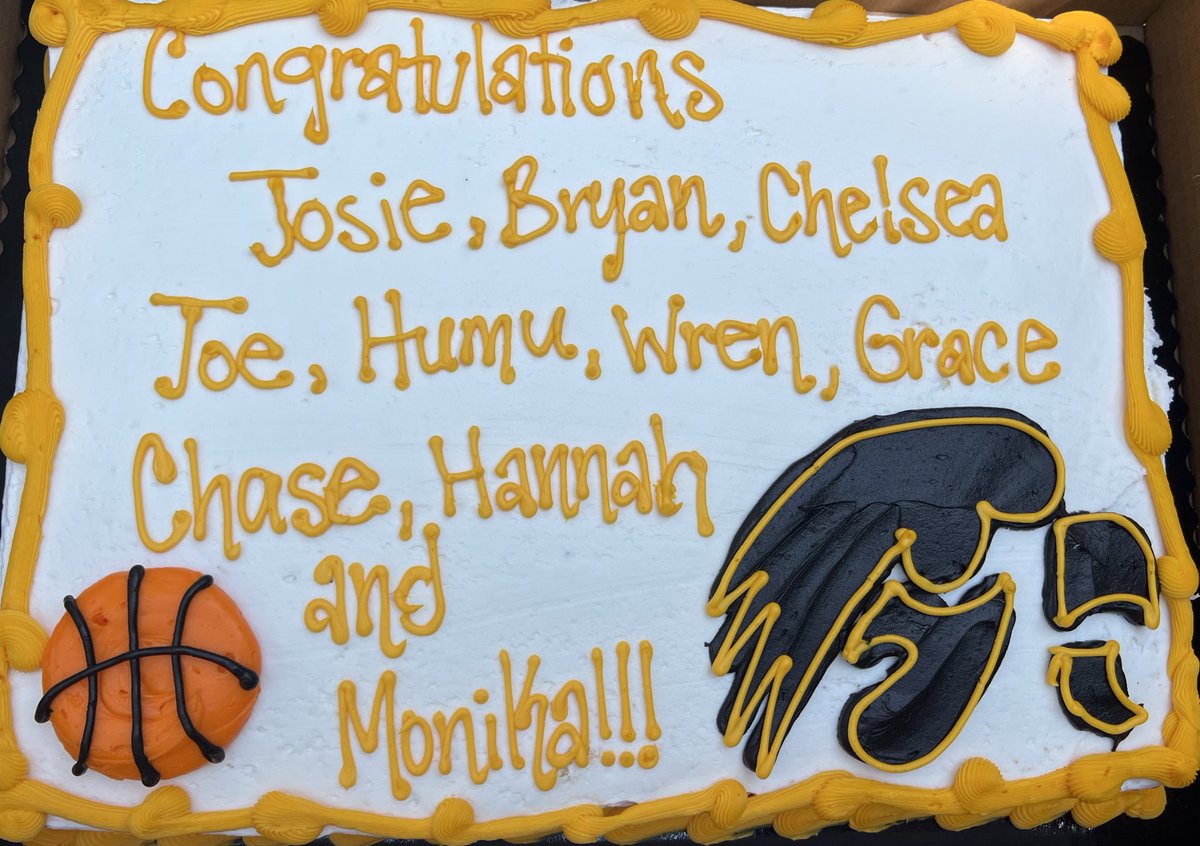 Congratulations
Josie, Bryan, Chelsea
Joe, Humu, Wren, Grace
Chase, Hannah
and
Monika!!!